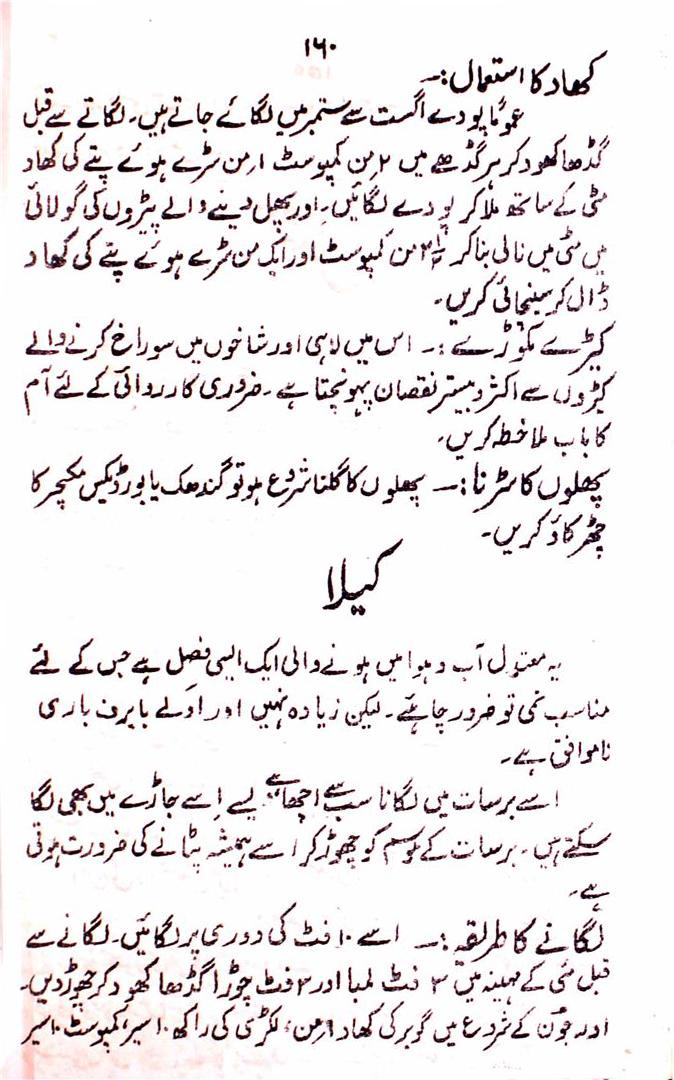 ۱۶۰
کھاد کا استعمال :۔
عموماً پودے اگست سے ستمبر میں لگائے جاتے ہیں۔ لگانے سے قبل
گڈھا کھود کر ہر گڈھے میں ۲ من کمپوسٹ ۱ من سڑے ہوئے پتے کی کھاد
مٹی کے ساتھ ملا کر پودے لگائیں۔ اور پھل دینے والے پیڑوں کی گولائی
میں مٹی میں نالی بنا کر من کمپوسٹ اور ایک من سڑے ہوئے پتے کی کھاد
ڈال کر سینچائی کریں۔
کیڑے مکوڑے :۔ اس میں لاہی اور شاخوں میں سوراخ کرنے والے
کیڑوں سے اکثر و بیشتر نقصان پہونچتا ہے۔ ضروری کارروائی کے لئے آم
کا باب ملاحظہ کریں۔
پھلوں کا سڑنا :۔ پھلوں کا گلنا شروع ہو تو گندھک یا بورڈیکس مکسچر کا
چھڑکاؤ کریں۔
کیلا
یہ معتدل آب و ہوا میں ہونے والی ایک ایسی فصل ہے جس کے لئے
مناسب نمی تو ضرور چاہئے۔ لیکن زیادہ نہیں اور اولے یا برف باری
ناموافق ہے۔
اسے برسات میں لگانا سب سے اچھا ہے ویسے اِسے جاڑے میں بھی لگا
سکتے ہیں۔ برسات کے موسم کو چھوڑ کر اسے ہمیشہ پٹانے کی ضرورت ہوتی
ہے۔
لگانے کا طریقہ :۔ اسے ۱۰ فٹ کی دوری پر لگائیں۔ لگانے سے
قبل مئی کے مہینہ میں ۳ فٹ لمبا اور ۳ فٹ چوڑا گڈھا کھود کر چھوڑ دیں۔
اور جون کے شروع میں گوبر کی کھاد من، لکڑی کی راکھ ۱۰ سیر، کمپوسٹ ۱۰ سیر